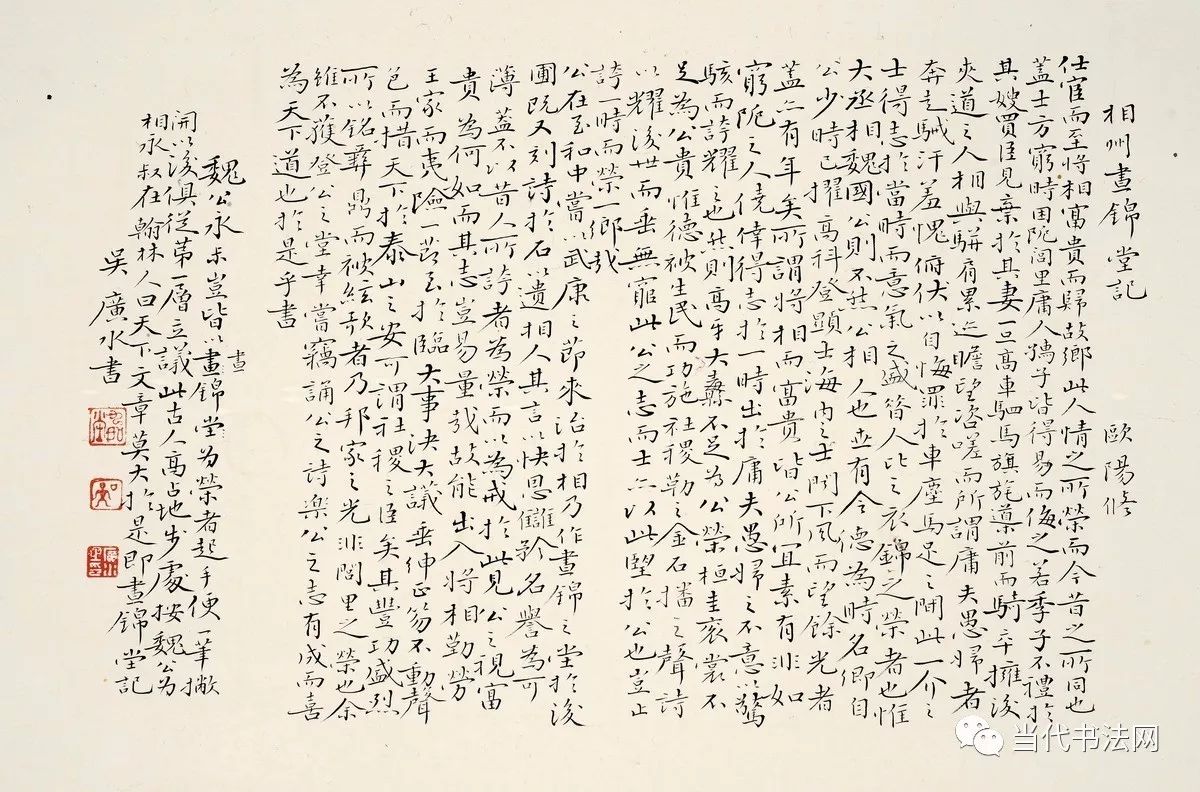 相州晝錦堂記 歐陽修
仕宦而至將相富貴而歸故鄉此人情之所榮而今昔之所同也
蓋士方窮時困阨閭里庸人孺子皆得易而侮之若季子不禮於
其嫂買臣見棄於其妻一旦高車駟馬旗旄導前而騎卒擁後
夾道之人相與駢肩累迹瞻望咨嗟而所謂庸夫愚婦者
奔走駭汗羞愧俯伏以自悔罪於車塵馬足之間此一介之
士得志於當時而意氣之盛昔人比之衣錦之榮者也惟
大丞相魏國公則不然公相人也世有令德為時名卿自
公少時已擢高科登顯士海內之士聞下風而望餘光者
蓋亦有年矣所謂將相而富貴皆公所宜素有非如
窮阨之人僥倖得志於一時出於庸夫愚婦之不意以驚
駭而誇耀之也然則高牙大纛不足為公榮桓圭袞裳不
足為公貴惟德被生民而功施社稷勒之金石播之聲詩
以耀後世而垂無窮此公之志而士亦以此望於公也豈止
誇一時而榮一鄉哉
公在至和中嘗以武康之節來治於相乃作晝錦之堂於後
圃既又刻詩於石以遺相人其言以快恩讎矜名譽為可
薄蓋不以昔人所誇者為榮而以為戒於此見公之視富
貴為何如而其志豈易量哉故能出入將相勤勞
王家而夷險一節至於臨大事決大議垂紳正笏不動聲
色而措天下於泰山之安可謂社稷之臣矣其豐功盛烈
所以銘彝鼎而被絃歌者乃邦家之光非閭里之榮也余
雖不獲登公之堂幸嘗竊誦公之詩樂公之志有成而喜
為天下道也於是乎書
晝
魏公永叔豈皆以晝錦堂為榮者起手便一筆撇
開以後俱從第一層立議此古人高占地步處按魏公為
相永叔在翰林人曰天下文章莫大於是即晝錦堂記
吳廣水書
当代书法网